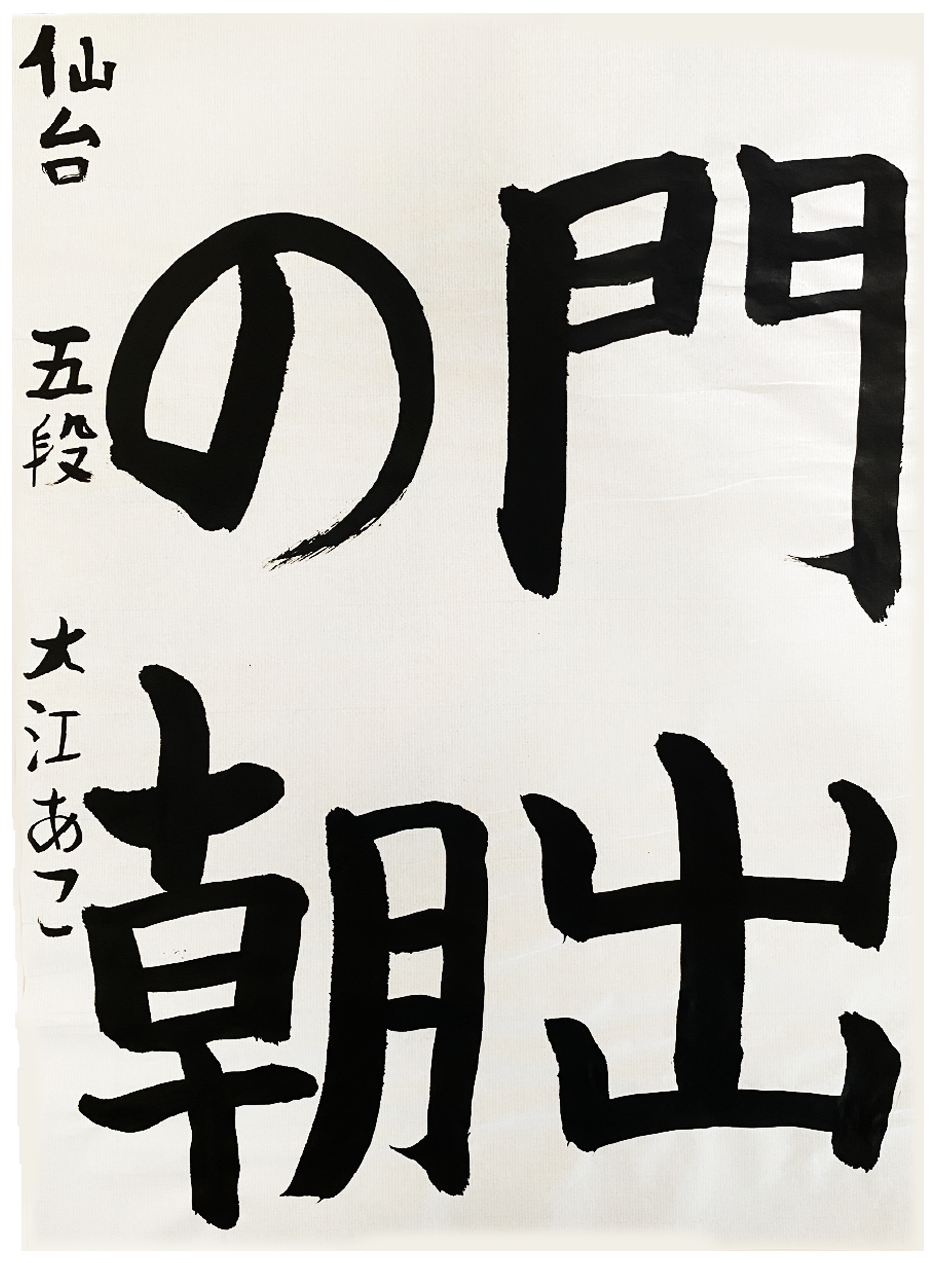 門出
の朝
仙台 五段 大江あこ